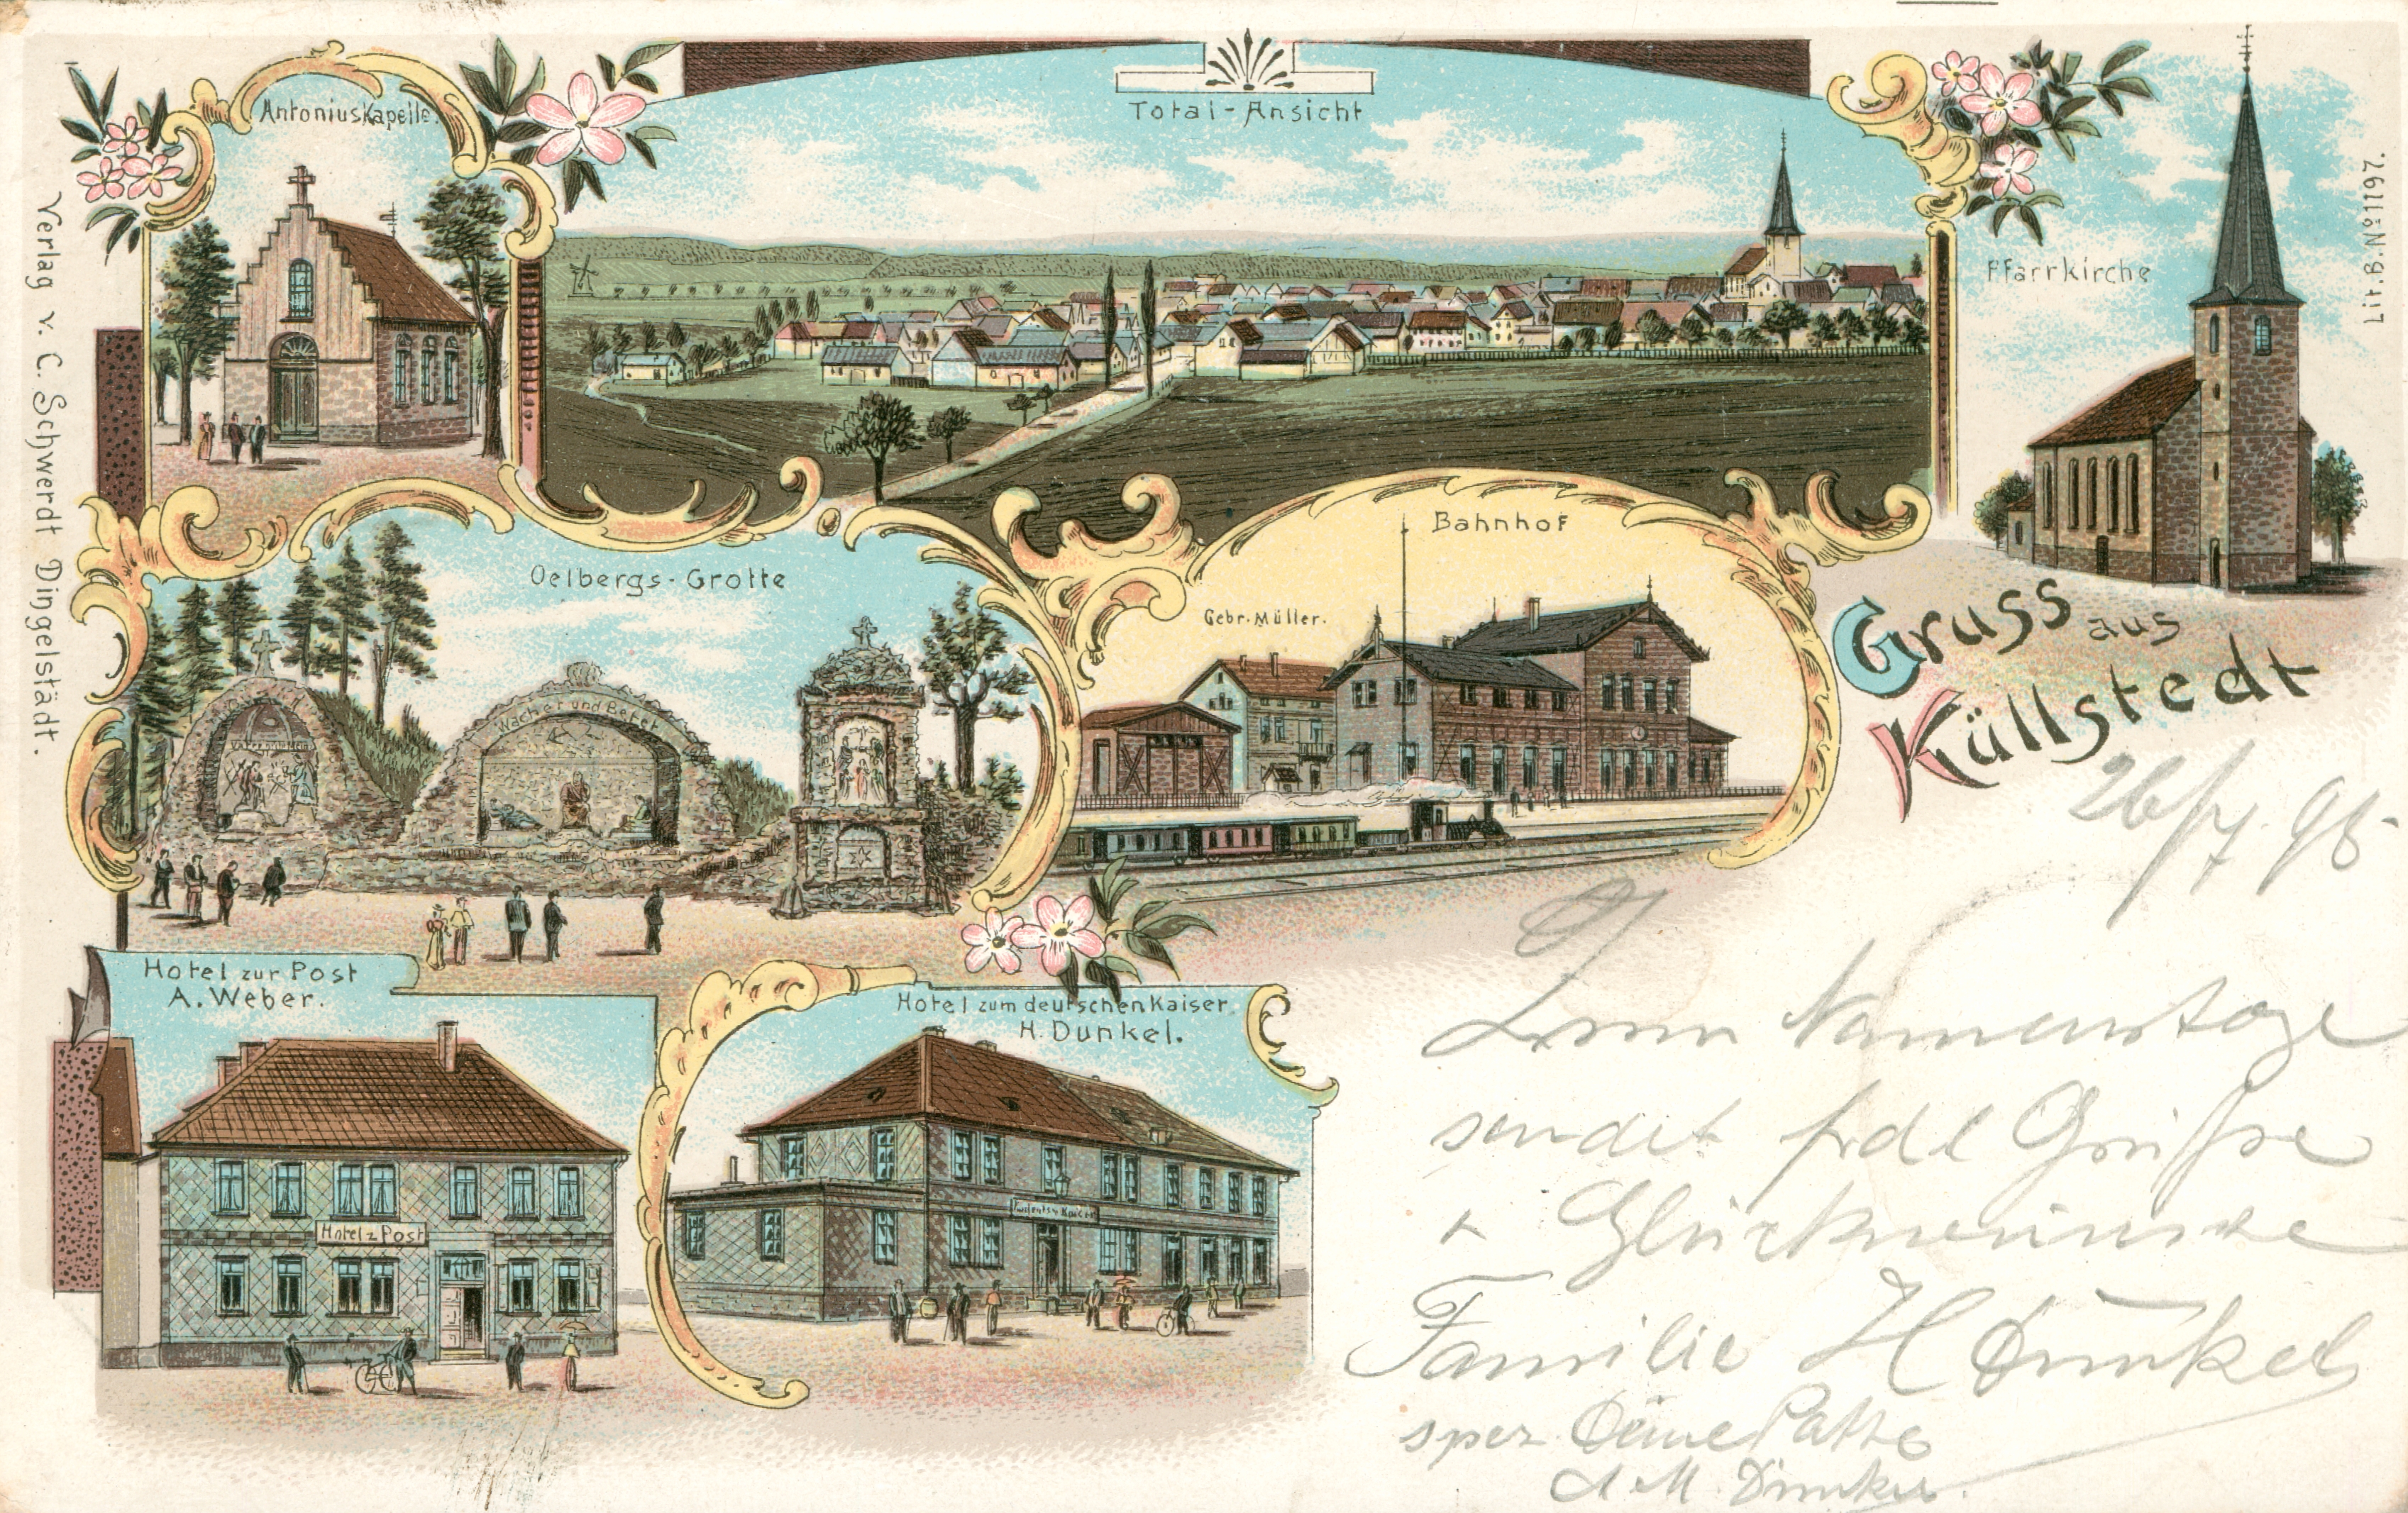 AntoniusKapelle.
Total-Ansicht
Pfarrkirche
Lit.B.No1197.
Verlag v. C. Schwerdt Dingelstädt.
Oelbergs-Grotte
Wachet und Betet
Bahnhof
Gebr. Müller.
Gruss aus
Küllstedt
Hotel zur Post
A. Weber.
Hotel z Post
Hotel zum deutschen Kaiser
H. Dunkel.
26/7. 98.
Zum Namenstage
sendet frdl Grüße
Glückwünsche
Familie H Dunkel
spez. Deine
A M. Dunkel.